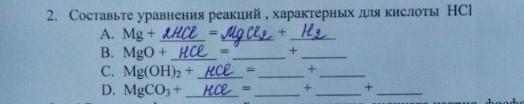 2. Составьте уравнения реакций , характерных для кислоты HCl
A. Mg + 2HCl = MgCl2 + H2
B. MgO + HCl = ______ + ______
C. Mg(OH)2 + HCl = ______ + ______
D. MgCO3 + HCl = ______ + ______ + ______